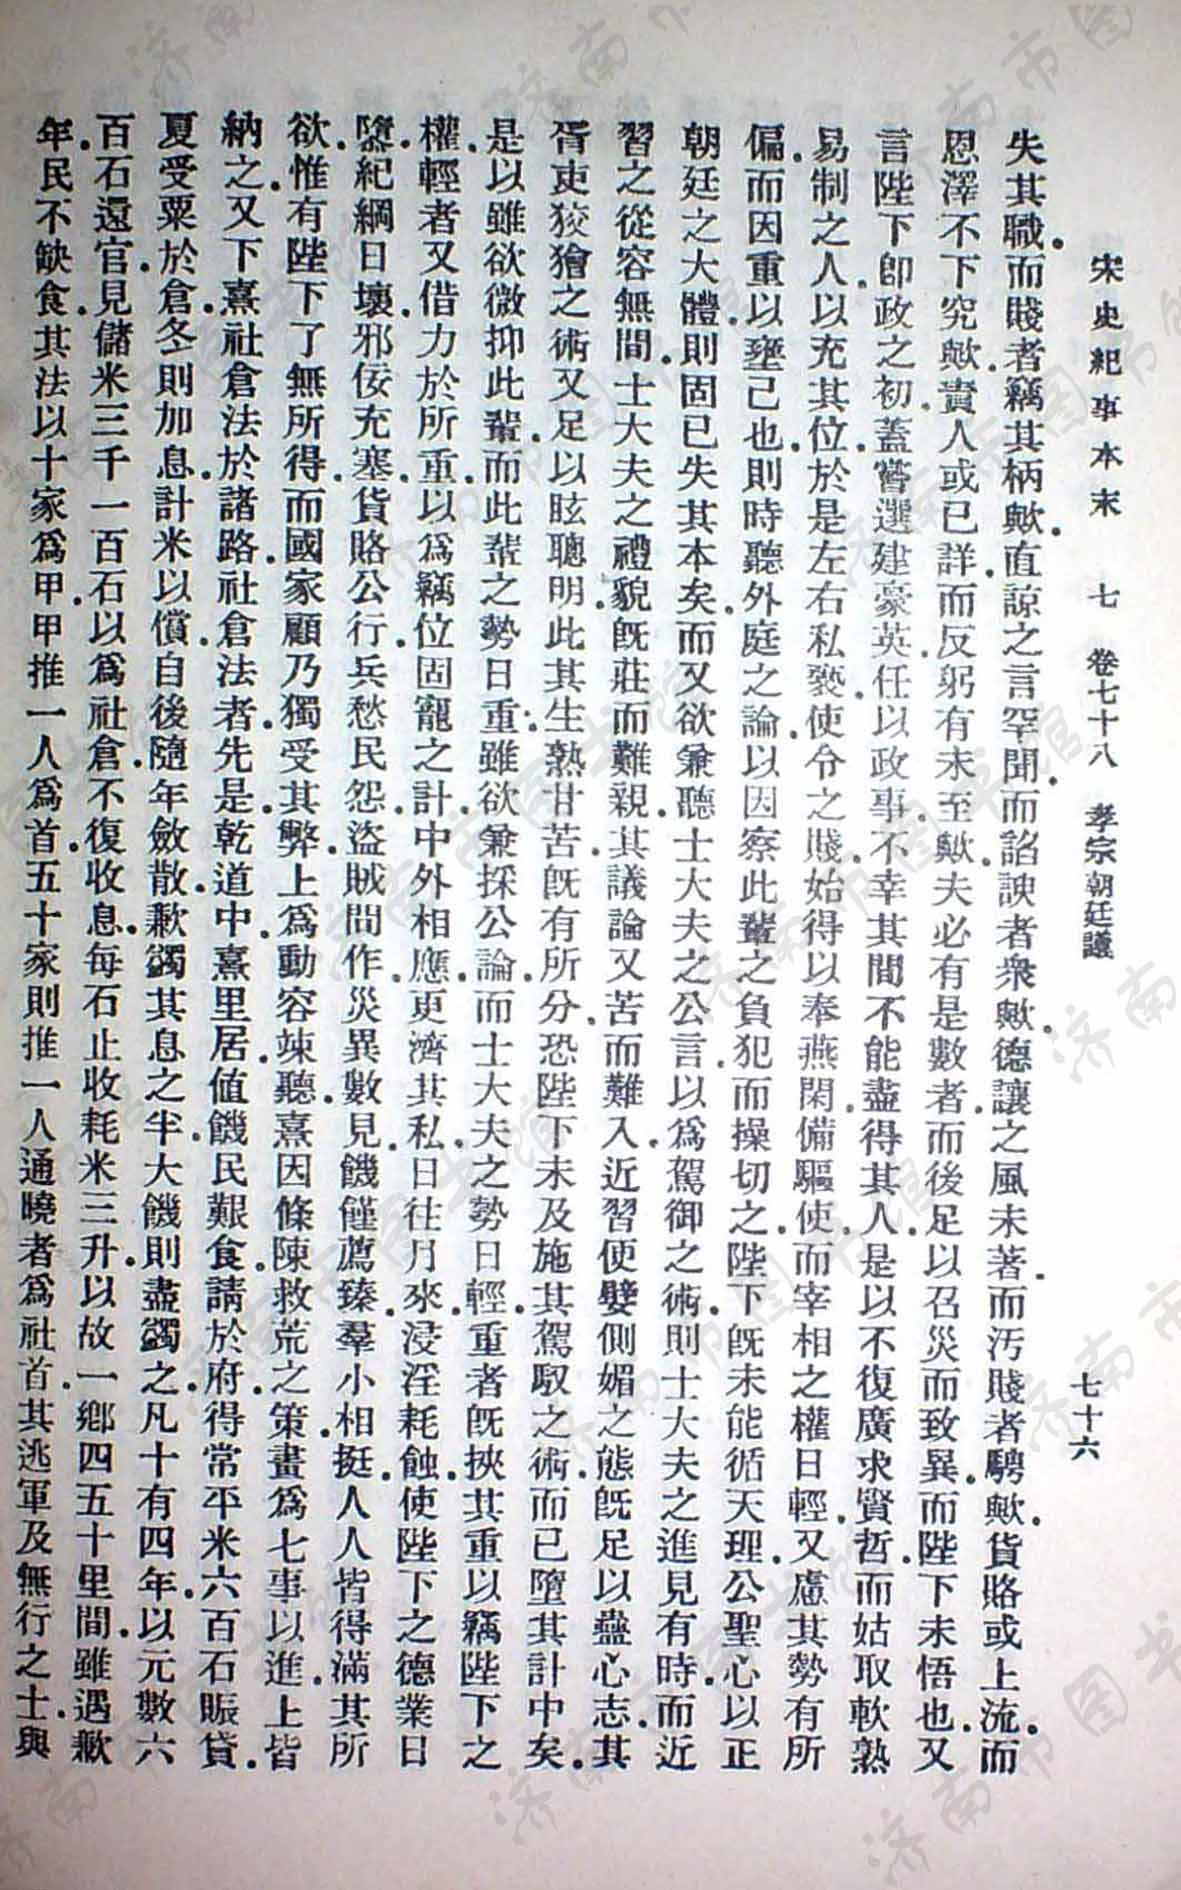 宋史紀事本末 七 卷七十八 孝宗朝廷議 七十六
失其職.而賤者竊其柄歟.直諒之言罕聞.而諂諛者衆歟.德讓之風未著.而汚賤者騁歟.貨賂或上流.而
恩澤不下究歟.責人或已詳.而反躬有未至歟.夫必有是數者.而後足以召災而致異.而陛下未悟也.又
言陛下卽政之初.蓋嘗選建豪英.任以政事.不幸其間不能盡得其人.是以不復廣求賢哲.而姑取軟熟
易制之人.以充其位.於是左右私褻.使令之賤.始得以奉燕閑.備驅使.而宰相之權日輕.又慮其勢有所
偏.而因重以壅己也.則時聽外庭之論.以因察此輩之負犯而操切之.陛下旣未能循天理.公聖心.以正
朝廷之大體.則固已失其本矣.而又欲兼聽士大夫之公言.以爲駕御之術.則士大夫之進見有時.而近
習之從容無間.士大夫之禮貌旣莊而難親.其議論又苦而難入.近習便嬖側媚之態旣足以蠱心志.其
胥吏狡獪之術又足以眩聰明.此其生熟甘苦.旣有所分.恐陛下未及施其駕馭之術.而已墮其計中矣.
是以雖欲微抑此輩.而此輩之勢日重.雖欲兼採公論.而士大夫之勢日輕.重者旣挾其重.以竊陛下之
權.輕者又借力於所重.以爲竊位固寵之計.中外相應.更濟其私.日往月來.浸淫耗蝕.使陛下之德業日
隳.紀綱日壞.邪佞充塞.貨賂公行.兵愁民怨.盜賊間作.災異數見.饑饉薦臻.羣小相挺.人人皆得滿其所
欲.惟有陛下了無所得.而國家顧乃獨受其弊.上爲動容竦聽.熹因條陳救荒之策.畫爲七事以進.上皆
納之.又下熹社倉法於諸路.社倉法者.先是乾道中.熹里居.值饑民艱食.請於府.得常平米六百石賑貸.
夏受粟於倉.冬則加息.計米以償.自後隨年斂散.歉蠲其息之半.大饑則盡蠲之.凡十有四年.以元數六
百石還官.見儲米三千一百石.以爲社倉.不復收息.每石止收耗米三升.以故一鄉四五十里間.雖遇歉
年.民不缺食.其法以十家爲甲.甲推一人爲首.五十家則推一人通曉者爲社首.其逃軍及無行之士.與